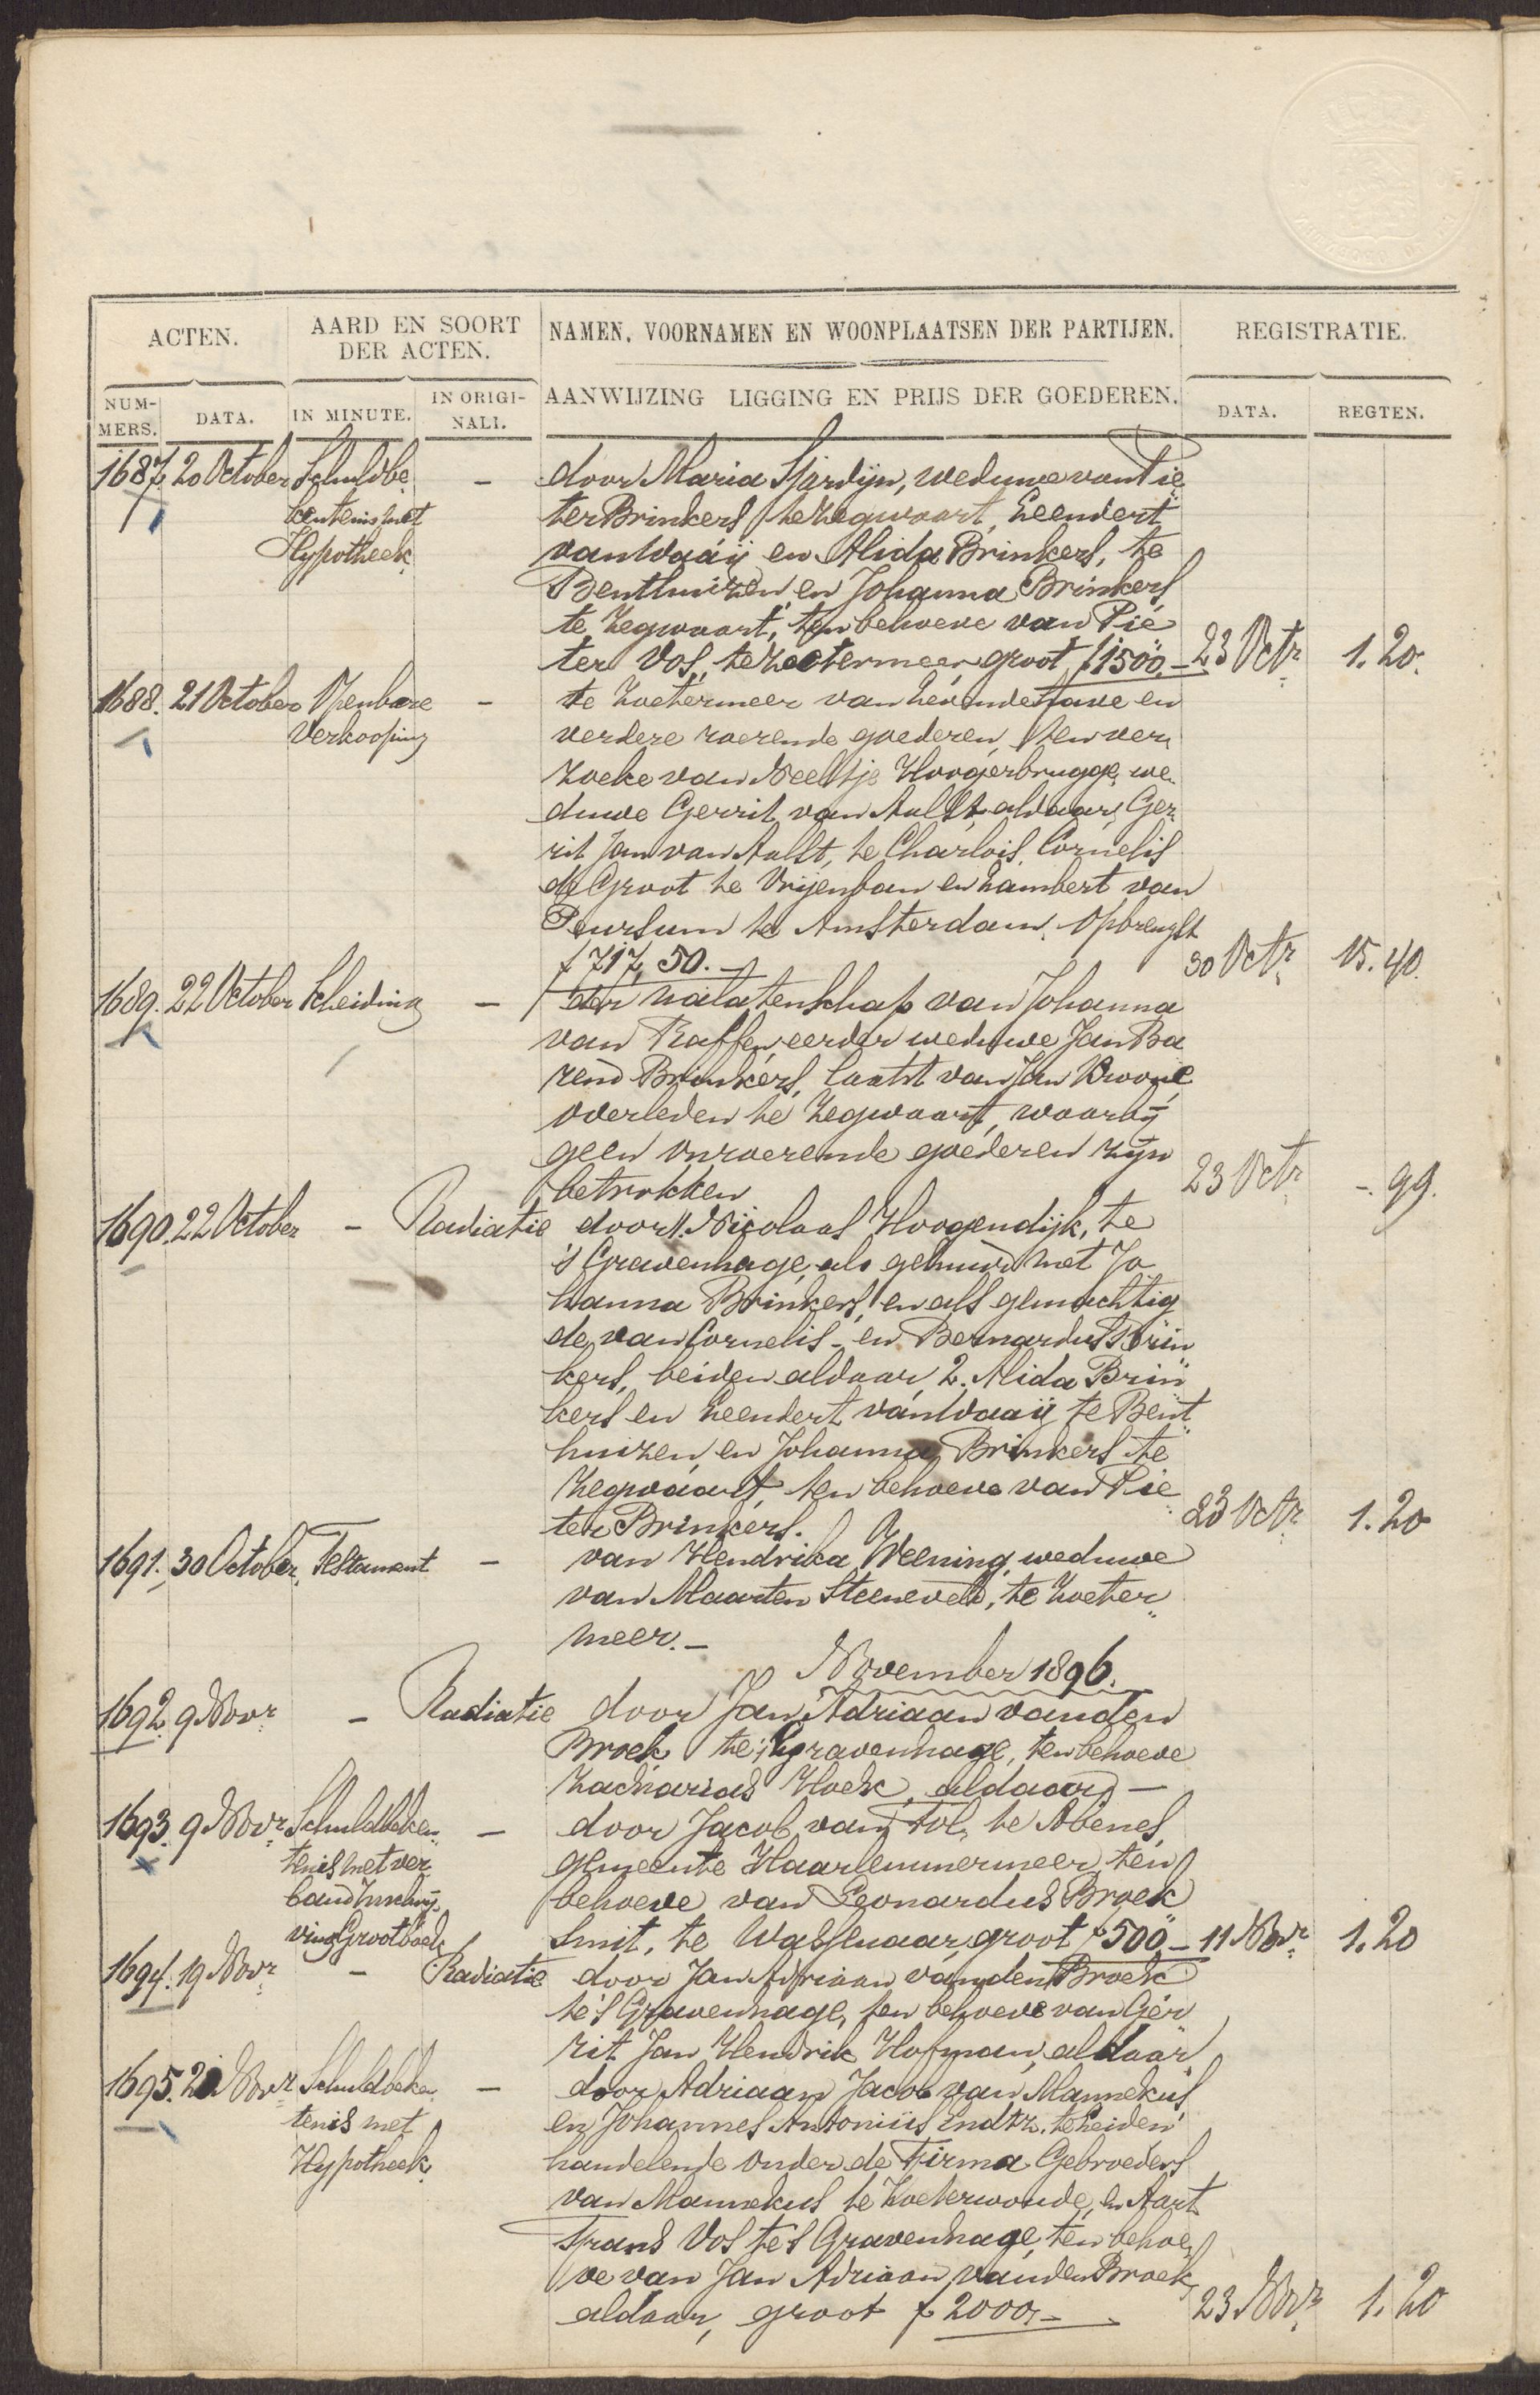 ACTEN.
AARD EN SOORT
DER ACTEN.
NAMEN, VOORNAMEN EN WOONPLAATSEN DER PARTIJEN.
REGISTRATIE.
NUM-
MERS.
DATA.
IN MINUTE.
IN ORIGI-
NALI.
AANWIJZING LIGGING EN PRIJS DER GOEDEREN.
DATA.
REGTEN.
1687. 20 October Schuldbe - door Maria Sjardijn, weduwe van Pie
kentenis met ter Brinkers te Zegwaart, Leendert
Hypotheek van Waaij en Alida Brinkers, te
Benthuizen en Johanna Brinkers
te Zegwaart, ten behoeve van Pie
ter Vos, te Zoetermeer groot f 1500.- 23 Octr 1.20.
1688. 21 October Openbare - te Zoetermeer van levende have en
Verkooping verdere roerende goederen, ten ver
zoeke van Neeltje Hoogerbrugge, we
duwe Gerrit van Aalst, aldaar, Ger
rit Jan van Aalst, te Charlois, Cornelis
de Groot te Vrijenban en Lambert van
Peursum te Amsterdam. Opbrengst
f 717,50.- 30 Octr 15.40.
1689. 22 October Scheiding - der nalatenschap van Johanna
van Raffen, eerder weduwe Jan Ba
rend Brinkers, laatst van Jan
overleden te Zegwaart, waarbij
geen onroerende goederen zijn
betrokken 23 Octr -.99.
1690. 22 October - Radiatie door 1. Nicolaas Hoogendijk, te
's Gravenhage, als gehuwd met Jo
hanna Brinkers, en als gemachtig
de van Cornelis- en Bernardus Brin
kers, beiden aldaar, 2. Alida Brin
kers en Leendert van Waaij te Bent
huizen, en Johanna Brinkers te
Zegwaart, ten behoeve van Pie
ter Brinkers. 23 Octr 1.20
1691. 30 October Testament - van Hendrika Weening, weduwe
van Maarten Steeneveld, te Zoeter
meer.-
November 1896.
1692. 9 Novr - Radiatie door Jan Adriaan van den
Broek te 's Gravenhage, ten behoeve
Zacharias Hoek, aldaar -
1693. 9 Novr Schuldbeken - door Jacob van Tol, te Abenes,
tenis met ver gemeente Haarlemmermeer, ten
band Inschrij behoeve van Leonardus Broek
ving Grootboek Smit, te Wassenaar, groot f 500.- 11 Novr 1.20
1694. 19 Novr - Radiatie door Jan Adriaan van den Broek
te 's Gravenhage, ten behoeve van Ger
rit Jan Hendrik Hofman, aldaar
1695. 20 Novr Schuldbeken - door Adriaan Jacob van Mannekus
tenis met en Johannes Antonius Endtz. te Leiden
Hypotheek handelende onder de Firma Gebroeders
van Mannekus te Zoeterwoude, en Aart
Frans Vos te 's Gravenhage, ten behoe
ve van Jan Adriaan van den Broek,
aldaar, groot f 2000,- 23 Novr 1.20